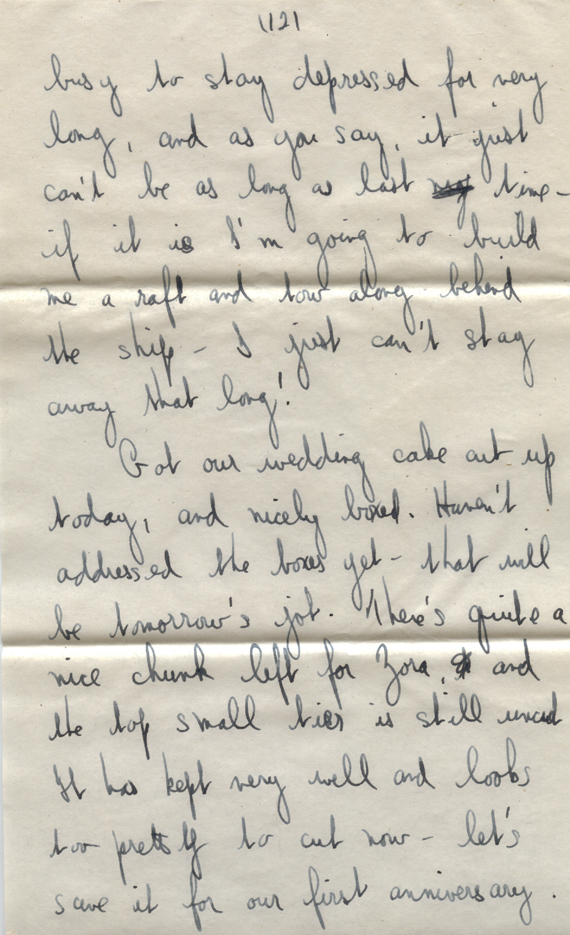 (12)
busy to stay depressed for very
long, and as you say, it just
can't be as long as last time-
if it is I'm going to build
me a raft and tow along behind
the ship - I just can't stay
away that long!
Got our wedding cake cut up
today, and nicely boxed. Haven't
addressed the boxes yet - that will
be tomorrow's job. There's quite a
nice chunk left for Zora, and
the top small tier is still uncut
It has kept very well and looks
too pretty to cut now - let's
save it for our first anniversary.